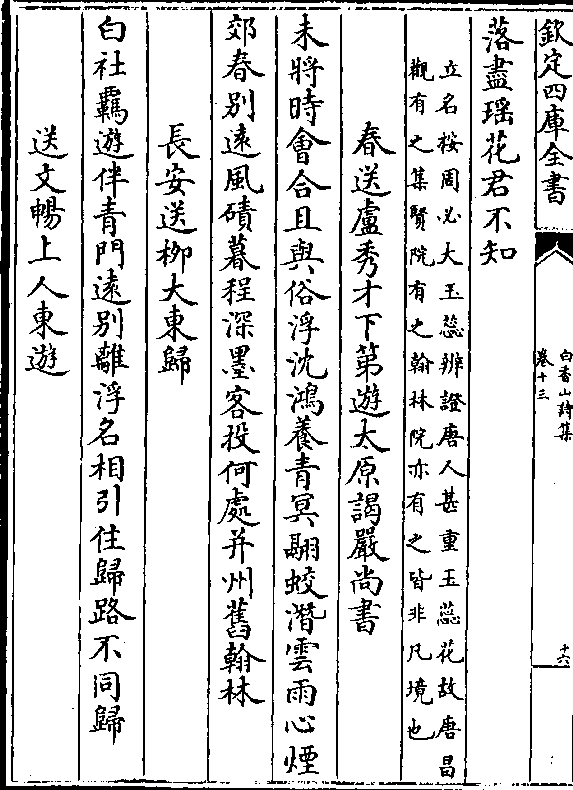 欽定四庫全書
白香山詩集
卷十三
十六
落盡瑶花君不知
立名桉周必大玉蕊辨證唐人甚重玉蕊花故唐昌
觀有之集賢院有之翰林院亦有之皆非凡境也
春送盧秀才下第遊太原謁嚴尚書
未將時會合且與俗浮沈鴻養青冥翮蛟潛雲雨心煙
郊春别遠風磧暮程深墨客投何處并州舊翰林
長安送栁大東歸
白社羈遊伴青門遠别離浮名相引住歸路不同歸
送文暢上人東遊